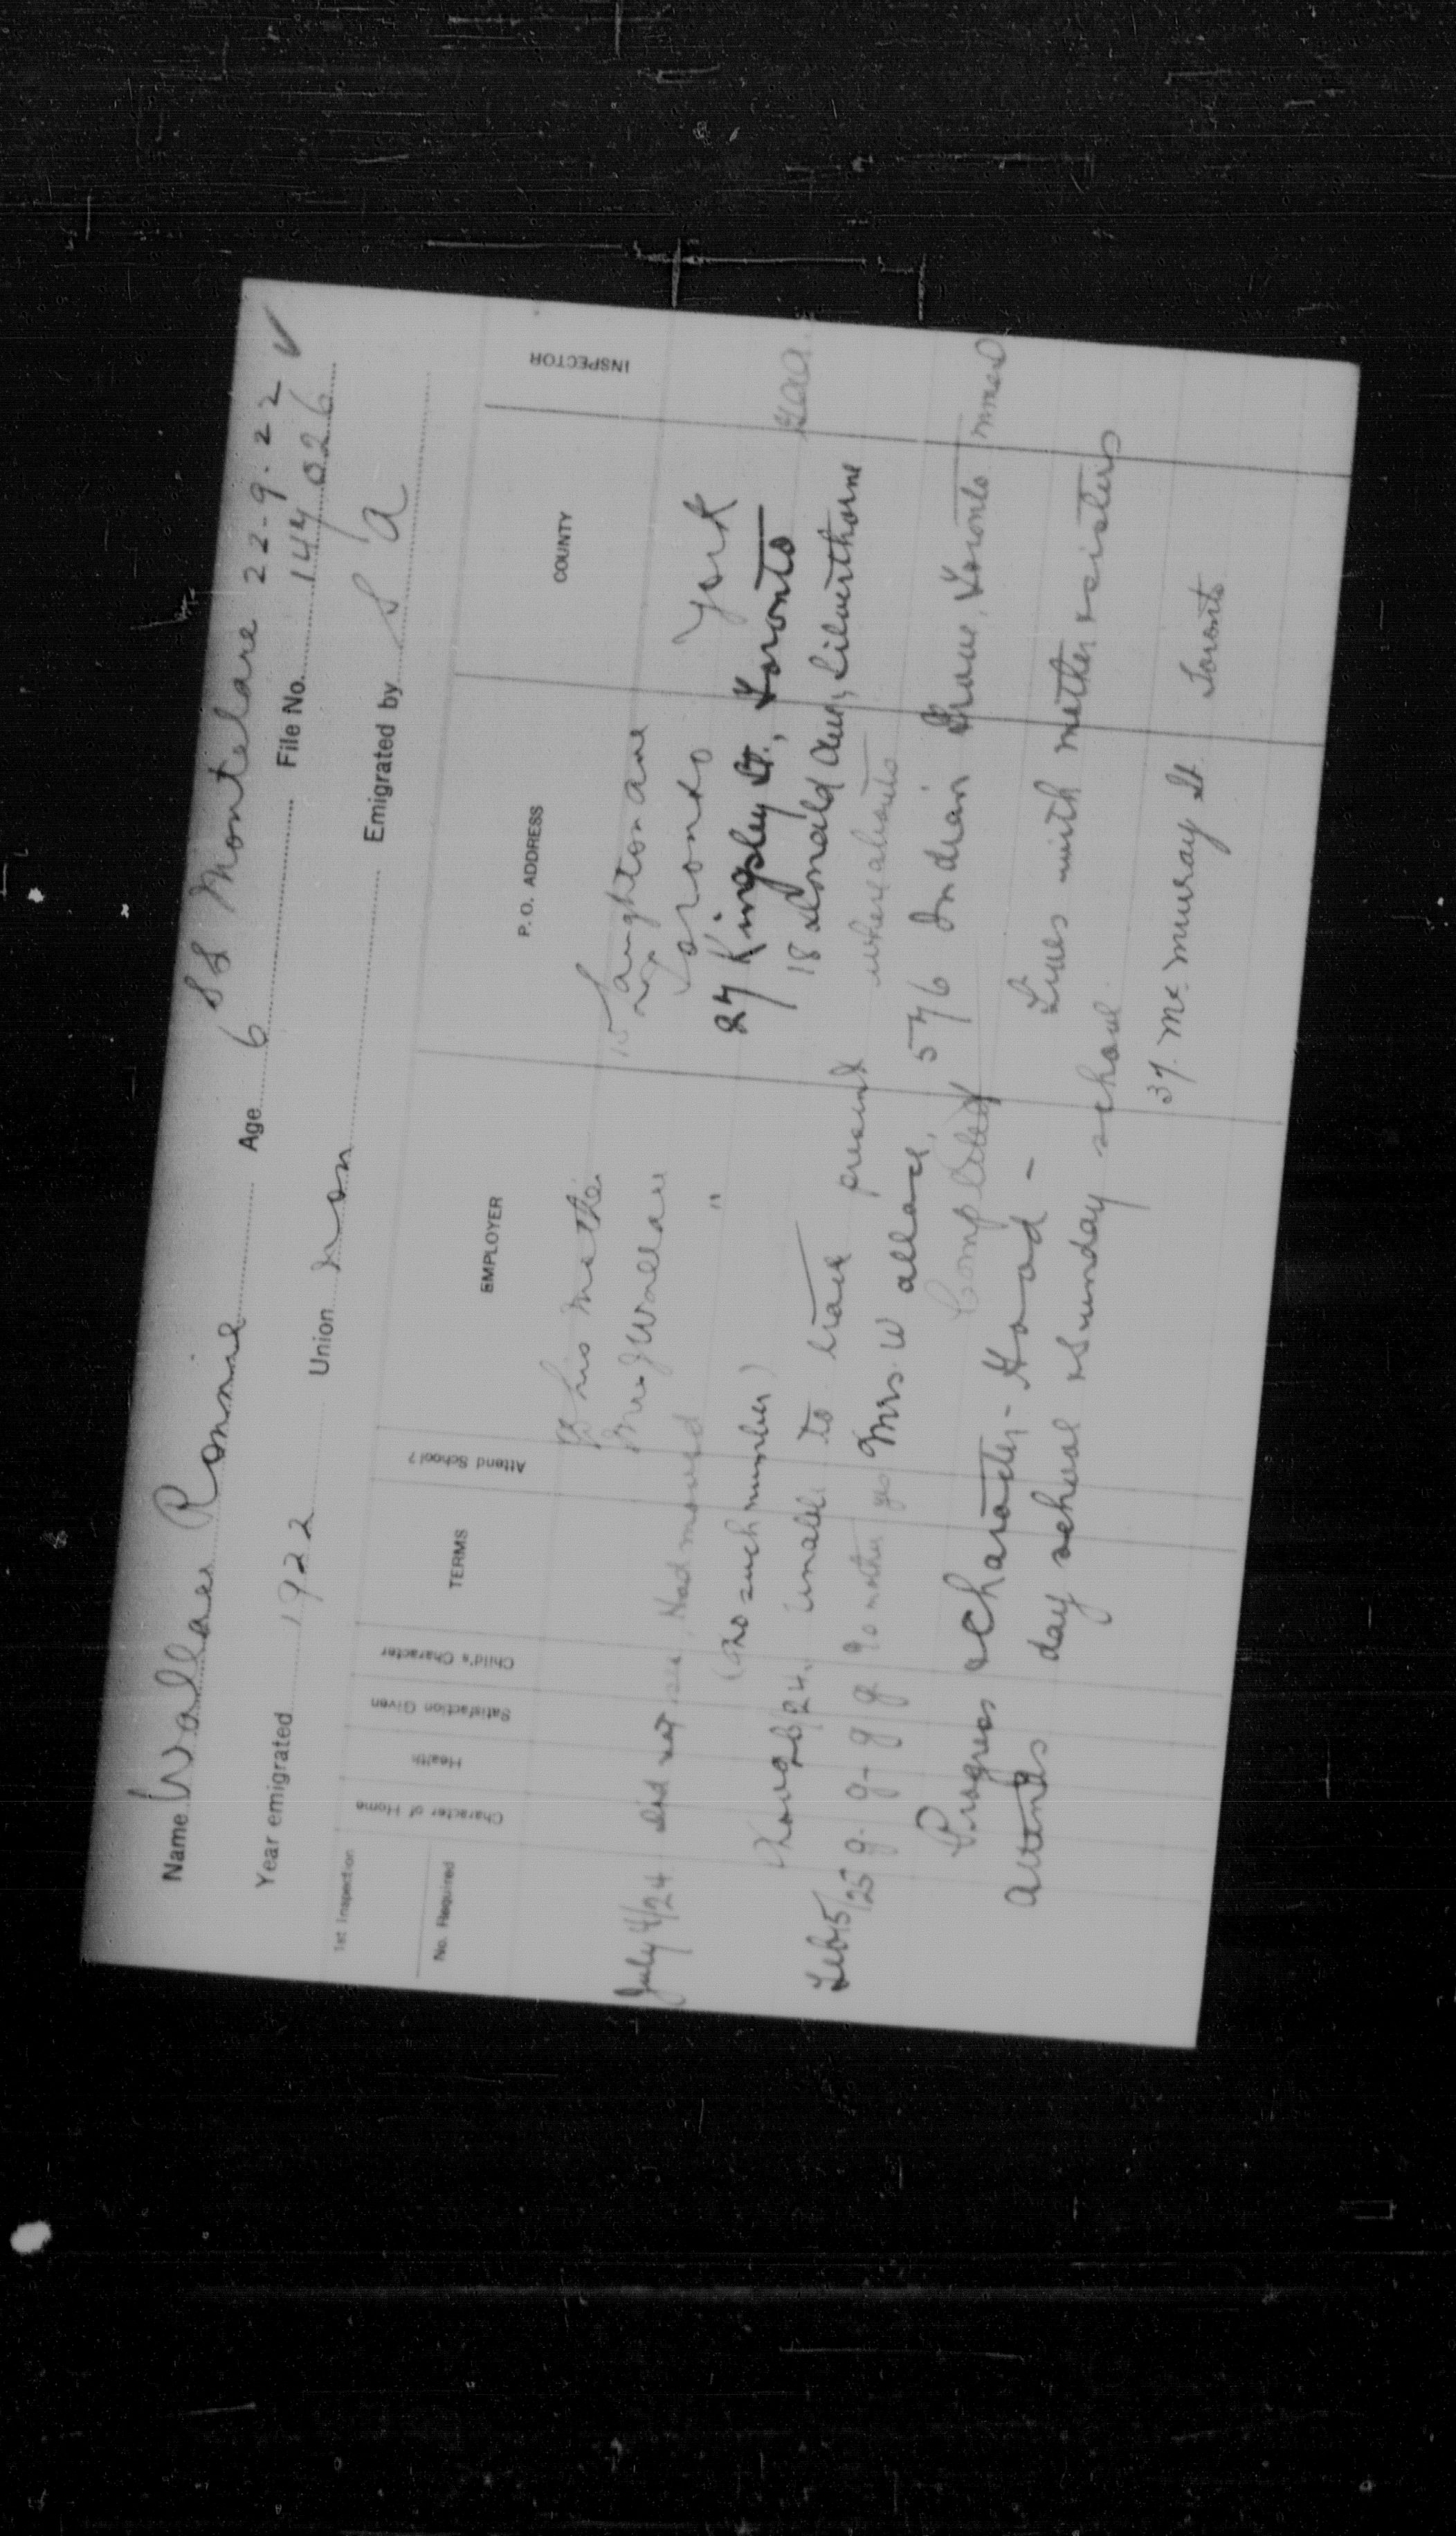 SS Montclare 22-9-22 ✓
Name Wallace Ronnie Age 6 File No. 144026
Year emigrated 1922 Union Non Emigrated by S A
1st Inspection
No. Required
Character of Home
Health
Satisfaction Given
Child's Character
TERMS
Attend School?
EMPLOYER
P. O. ADDRESS
COUNTY
INSPECTOR
his mother 15 Laughton ave
Mrs J Wallace Toronto York
July 4/24 Did not see, Had moved " 27 Kingsley St., Toronto
(No such number) 18 Donald Ave, Silverthorne
Nov 26/24. Unable to trace present whereabouts
Feb 15/25 g. g- g g To mother yes Mrs. W allace, 576 Indian Grove, Toronto
Completed
Progress & Character - Good - Lives with mother & sisters
Attends day school & Sunday school.
37. Mc Murray St. Toronto